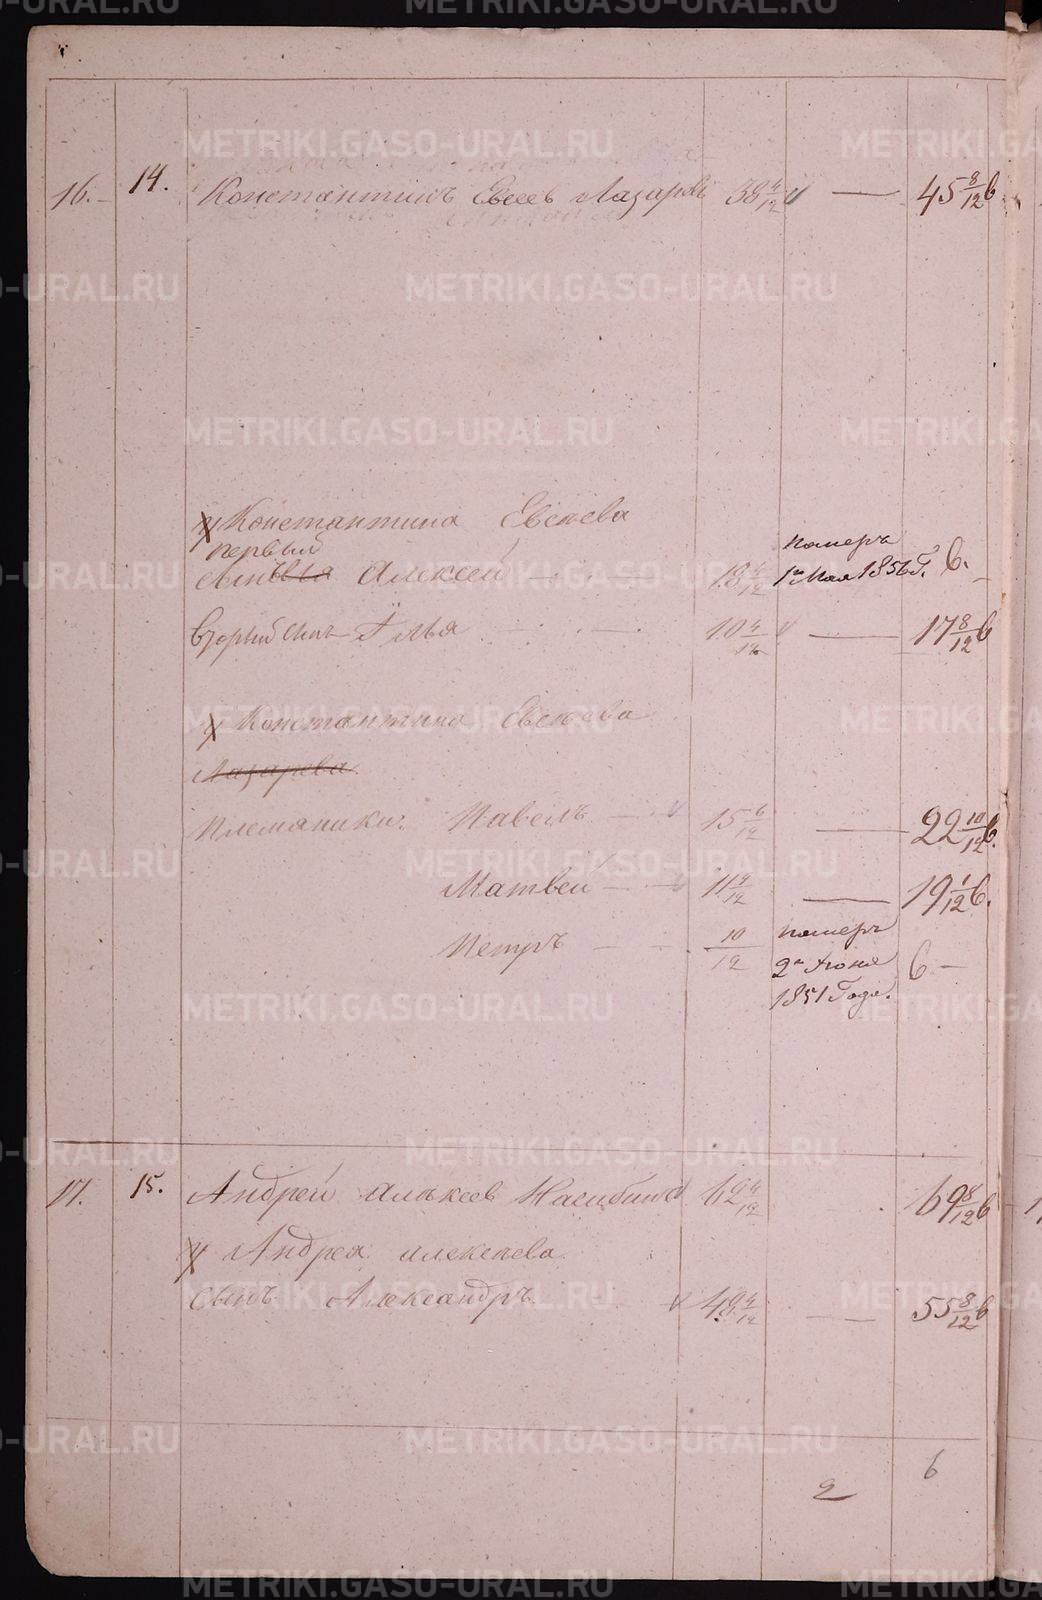 16. 14. Константинъ Евсеевъ Лазаревъ 38 4/12 — 45 8/12
у Константина Евсеева
первый
сынъ Алексей 18 4/12 померъ 1го Мая 1856 г.
Вторый сынъ Илья 10 4/12 — 17 8/12
у Константина Евсеева
Лазарева
Племянники: Павелъ 15 6/12 — 22 10/12
Матвей 11 9/12 — 19 1/12
Петръ 10/12 померъ
2го Июня
1851 года.
17. 15. Андрей Алексеев 62 4/12 69 8/12
у Андрея Алексеева
сынъ Александръ 48 4/12 — 55 8/12
2 6
METRIKI.GASO-URAL.RU